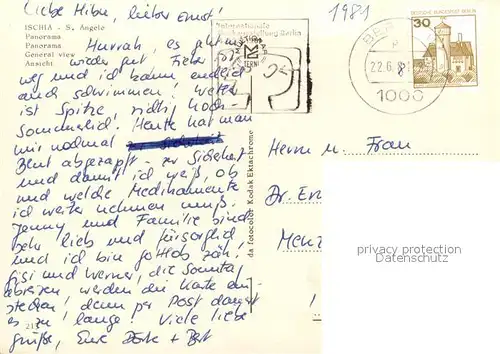 Liebe Hiba, lieber Ernst!
1981
ISCHIA - S. Angelo
Panorama
Panorama
General view
Ansicht
Hurrah, es geht mir
wieder gut, Fieber
weg und ich kann endlich
auch schwimmen! Wetter
ist Spitze, richtig hoch-
sommerlich. Heute hat man
mir nochmal
Blut abgezapft - zur Sicherheit
und damit ich weiß, ob
und welche Medikamente
ich weiter nehmen muß.
Jenny und Familie sind
sehr lieb und fürsorglich
und ich bin gottlob zäh!
Gisi und Werner, die Sonntag
abreisen werden die Karte ein-
stecken, denn per Post dauert
es zu lange. Viele liebe
Grüße, Eure
Internationale
Berlin
BERLIN
22.6.81
1000
30
DEUTSCHE BUNDESPOST BERLIN
da fotocolor Kodak Ektachrome
Herrn u. Frau
Dr.
privacy protection
Datenschutz